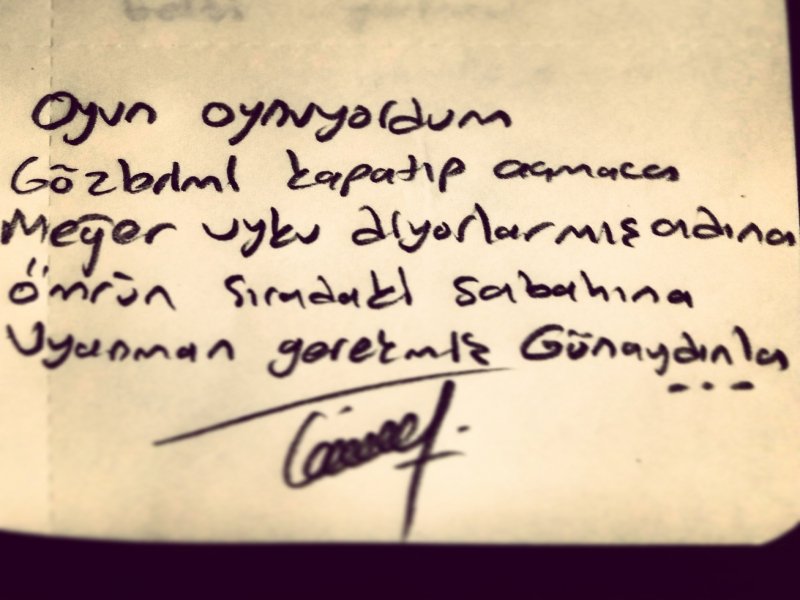 Oyun oynuyordum
Gözbdml kapatıp açmaca
Meğer uyku diyorlarmış adına
Ömrün sıradakl sabahına
Uyanman gerekmlş Günaydınla
...